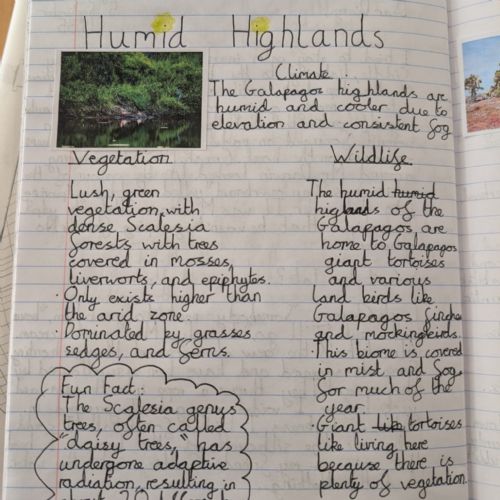 Humid Highlands
Climate.
The Galapagos highlands are
humid and cooler due to
elevation and consistent fog
Vegetation
Lush, green
vegetation, with
dense Scalesia
forests with trees
covered in mosses,
liverworts, and epiphytes.
· Only exists higher than
the arid zone.
· Dominated by grasses
sedges, and ferns.
Fun Fact:
The Scalesia genus
trees, often called
"daisy trees," has
undergone adaptive
radiation, resulting in
about 20
Wildlife
The humid humid
highlands of the
Galapagos are
home to Galapagos
giant tortoises
and various
land birds like
Galapagos finches
and mockingbirds.
· This biome is covered
in mist and fog
for much of the
year.
· Giant like tortoises
like living here
because there is
plenty of vegetation.